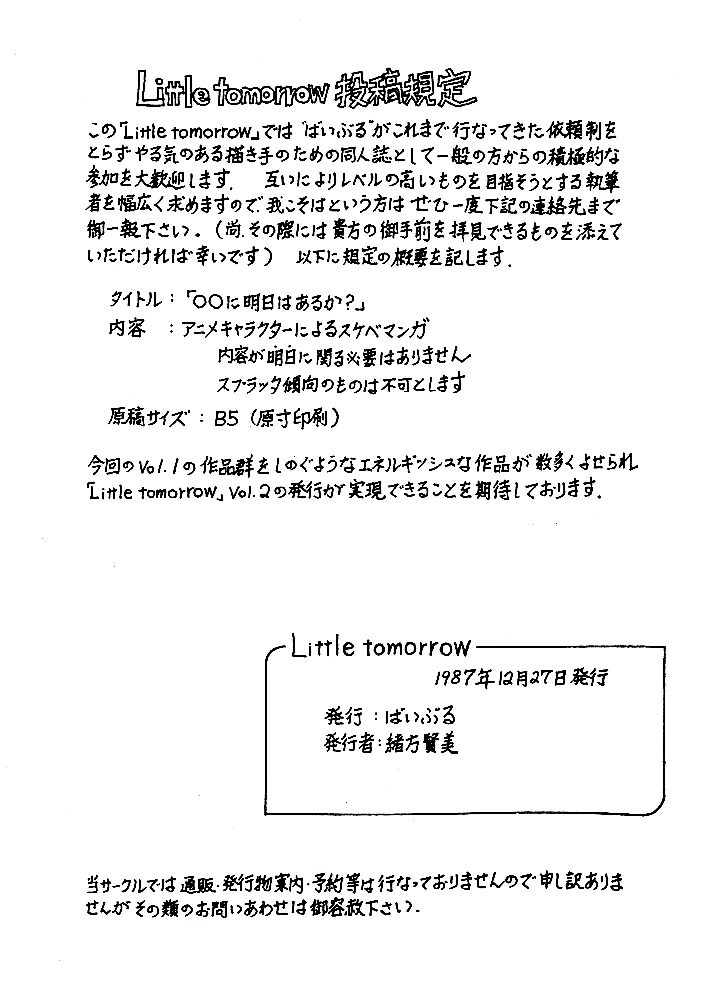 Little tomorrow 投稿規定
この「Little tomorrow」では"ばいぶる"がこれまで行なってきた依頼制を
とらずやる気のある描き手のための同人誌として一般の方からの積極的な
参加を大歓迎します. 互いによりレベルの高いものを目指そうとする執筆
者を幅広く求めますので、我こそはという方は ぜひ一度下記の連絡先まで
御一報下さい。(尚、その際には貴方の御手前を拝見できるものを添えて
いただければ幸いです) 以下に規定の概要を記します.
タイトル:「○○に明日はあるか?」
内容 :アニメキャラクターによるスケベマンガ
内容が明日に関る必要はありません
スプラッタ傾向のものは不可とします
原稿サイズ:B5(原寸印刷)
今回のVol.1の作品群をしのぐようなエネルギッシュな作品が数多くよせられ
「Little tomorrow」Vol.2の発行が実現できることを期待しております.
Little tomorrow
1987年12月27日発行
発行:ばいぶる
発行者:緒方賢美
当サークルでは通販・発行物案内・予約等は行なっておりませんので申し訳ありま
せんがその類のお問いあわせは御容赦下さい.